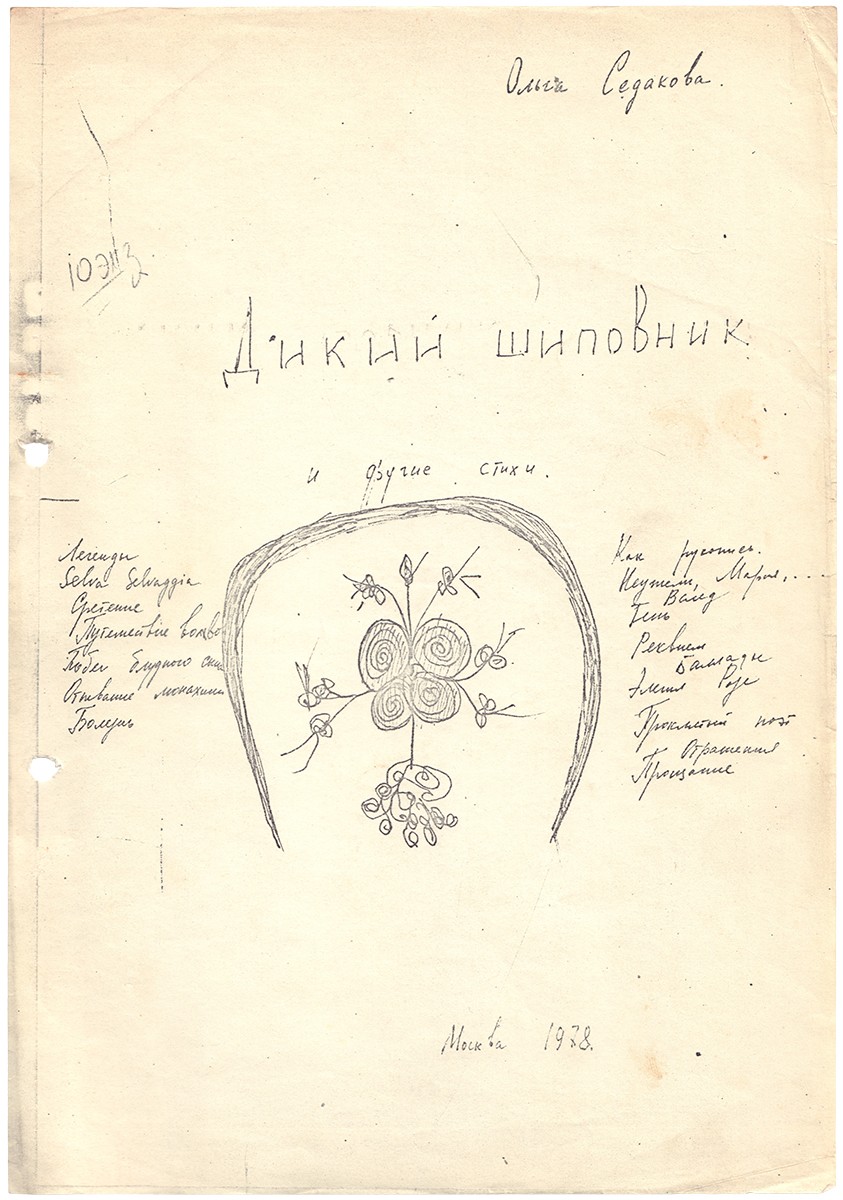 Ольга Седакова.
Дикий шиповник
и другие стихи.
Легенды
Selva Selvaggia
Сретение
Путешествие волхвов
Побег блудного сына
Отпевание монахини
Болезнь
Как рукопись.
Неужели, Мария, ...
Валед
Тень
Реквием
Баллады
Элегия Розе
Проклятый поэт
Отражения
Прощание
Москва 1978.